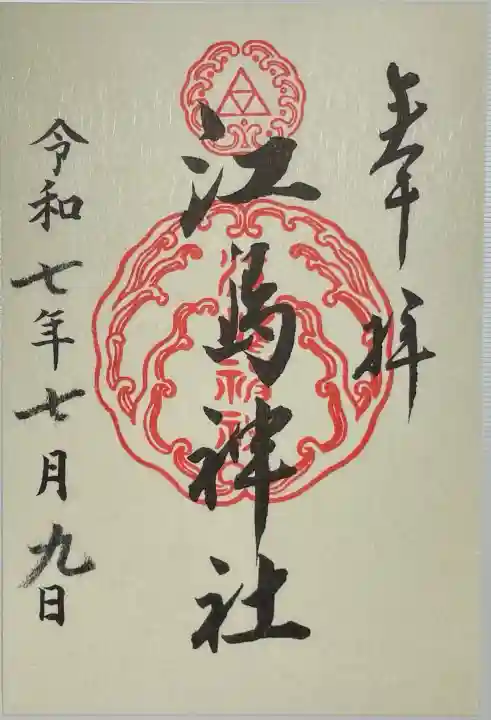 奉拝
江島神社
令和七年七月九日